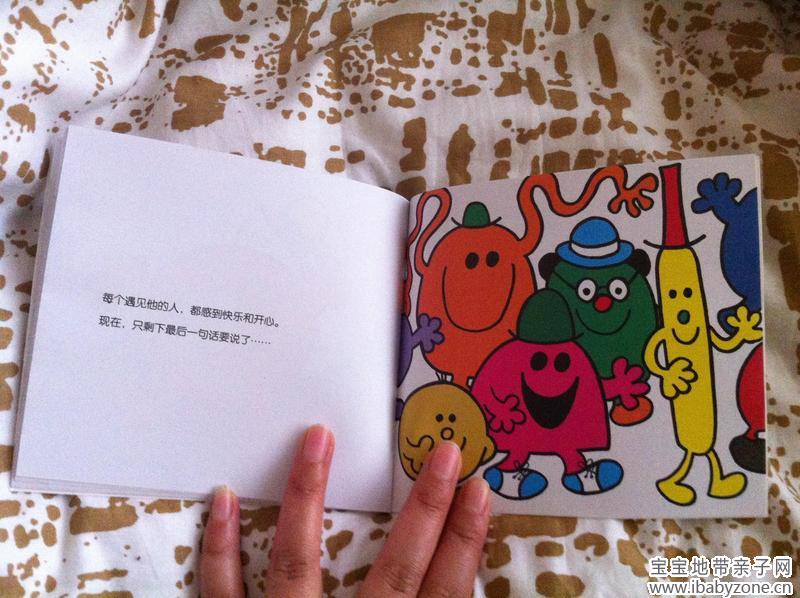 每个遇见他的人，都感到快乐和开心。
现在，只剩下最后一句话要说了……
宝宝地带亲子网
www.ibabyzone.cn